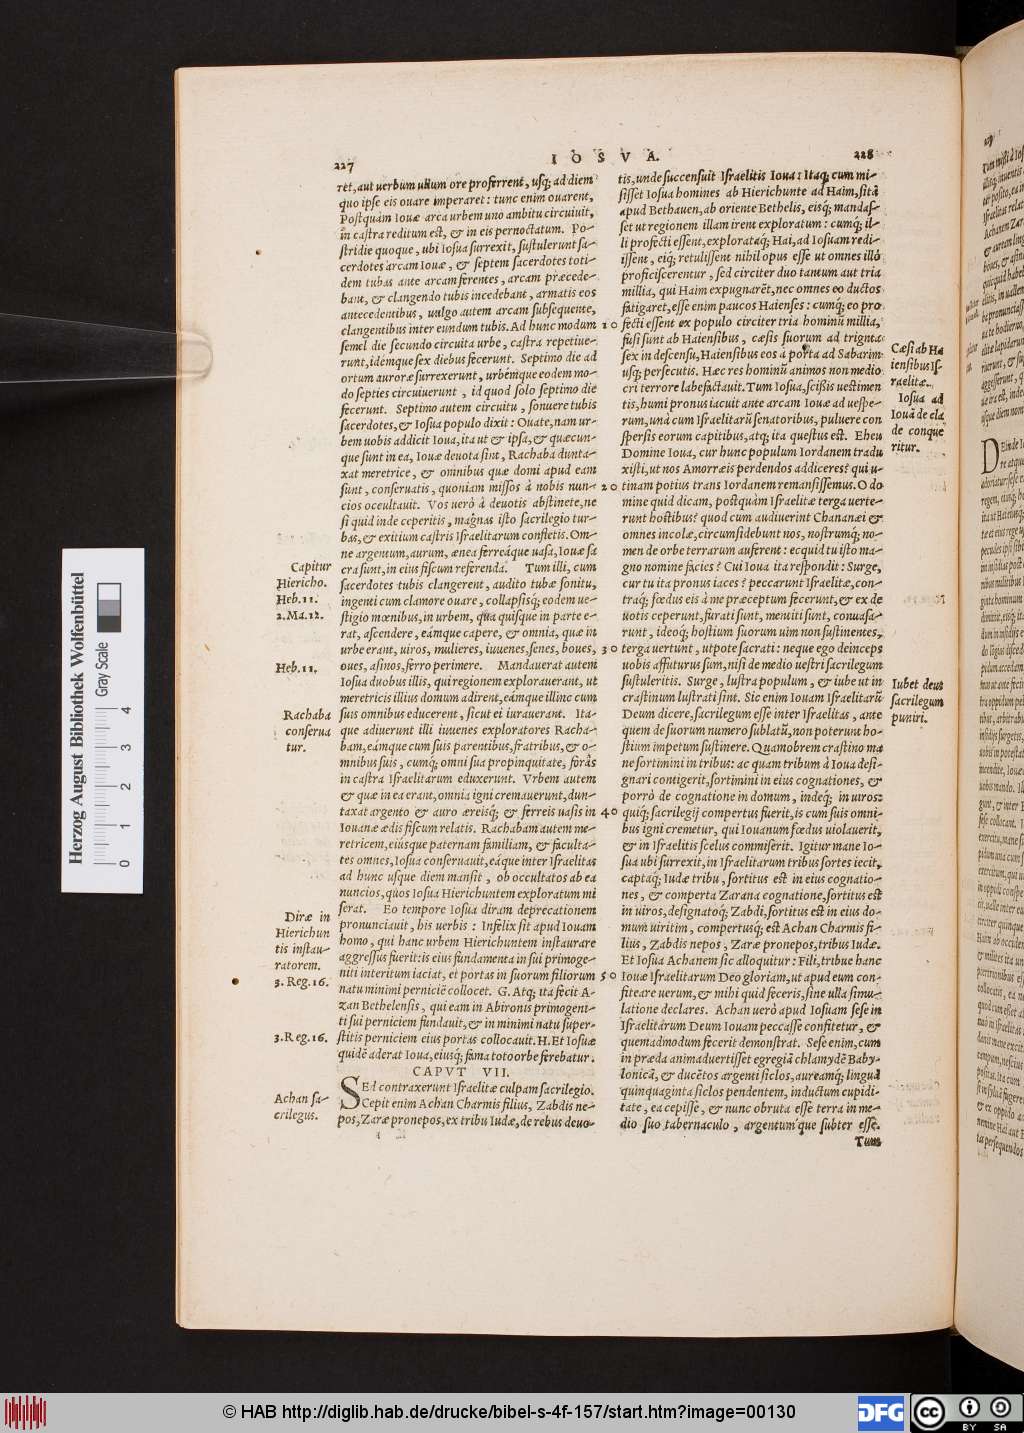 227
I O S V A.
228
ret, aut uerbum ullum ore proferrent, usq; ad diem
quo ipse eis ouare imperaret: tunc enim ouarent,
Postquàm Iouæ arca urbem uno ambitu circuiuit,
in castra reditum est, & in eis pernoctatum. Po-
stridie quoque, ubi Iosua surrexit, sustulerunt sa-
cerdotes arcam Iouæ, & septem sacerdotes toti-
dem tubas ante arcam ferentes, arcam præcede-
bant, & clangendo tubis incedebant, armatis eos
antecedentibus, uulgo autem arcam subsequente,
clangentibus inter eundum tubis. Ad hunc modum
semel die secundo circuita urbe, castra repetiue-
runt, idemque sex diebus fecerunt. Septimo die ad
ortum auroræ surrexerunt, urbémque eodem mo-
do septies circuiuerunt, id quod solo septimo die
fecerunt. Septimo autem circuitu, sonuere tubis
sacerdotes, & Iosua populo dixit: Ouate, nam ur-
bem uobis addicit Ioua, ita ut & ipsa, & quæcun-
que sunt in ea, Iouæ deuota sint, Rachaba dunta-
xat meretrice, & omnibus quæ domi apud eam
sunt, conseruatis, quoniam missos à nobis nun-
cios occultauit. Vos uerò à deuotis abstinete, ne
si quid inde ceperitis, magnas isto sacrilegio tur-
bas, & exitium castris Israelitarum confletis. Om-
ne argentum, aurum, ænea ferreáque uasa, Iouæ sa
cra sunt, in eius fiscum referenda. Tum illi, cum
sacerdotes tubis clangerent, audito tubæ sonitu,
ingenti cum clamore ouare, collapsisq; eodem ue-
stigio mœnibus, in urbem, qua quisque in parte e-
rat, ascendere, eámque capere, & omnia, quæ in
urbe erant, uiros, mulieres, iuuenes, senes, boues,
oues, asinos, ferro perimere. Mandauerat autem
Iosua duobus illis, qui regionem explorauerant, ut
meretricis illius domum adirent, eámque illinc cum
suis omnibus educerent, sicut ei iurauerant. Ita-
que adiuerunt illi iuuenes exploratores Racha-
bam, eámque cum suis parentibus, fratribus, & o-
mnibus suis, cumq; omni sua propinquitate, foràs
in castra Israelitarum eduxerunt. Vrbem autem
& quæ in ea erant, omnia igni cremauerunt, dun-
taxat argento & auro æreisq; & ferreis uasis in
Iouanæ ædis fiscum relatis. Rachabam autem me-
retricem, eiúsque paternam familiam, & faculta-
tes omnes, Iosua conseruauit, eáque inter Israelitas
ad hunc usque diem mansit, ob occultatos ab ea
nuncios, quos Iosua Hierichuntem exploratum mi
serat. Eo tempore Iosua diram deprecationem
pronunciauit, his uerbis: Infelix sit apud Iouam
homo, qui hanc urbem Hierichuntem instaurare
aggressus fuerit: is eius fundamenta in sui primoge-
niti interitum iaciat, et portas in suorum filiorum
natu minimi perniciē collocet. G. Atq; ita fecit A-
zan Bethelensis, qui eam in Abironis primogeni-
ti sui perniciem fundauit, & in minimi natu super-
stitis perniciem eius portas collocauit. H. Et Iosuæ
quidē aderat Ioua, eiusq; fama toto orbe ferebatur.
CAPVT VII.
SEd contraxerunt Israelitæ culpam sacrilegio.
Cepit enim Achan Charmis filius, Zabdis ne-
pos, Zaræ pronepos, ex tribu Iudæ, de rebus deuo-
Capitur
Hiericho.
Heb. 11.
2. Ma. 12.
Heb. 11.
Rachaba
conserua
tur.
Diræ in
Hierichun
tis instau-
ratorem.
3. Reg. 16.
3. Reg. 16.
Achan sa-
crilegus.
10
20
30
40
50
tis, unde succensuit Israelitis Ioua: Itaq, cum mi-
sisset Iosua homines ab Hierichunte ad Haim, sitā
apud Bethauen, ab oriente Bethelis, eisq; mandas-
set ut regionem illam irent exploratum: cumq; il-
li profecti essent, exploratáq; Hai, ad Iosuam redi-
issent, eiq; retulissent nihil opus esse ut omnes illò
proficiscerentur, sed circiter duo tantum aut tria
millia, qui Haim expugnarēt, nec omnes eo ductos
fatigaret, esse enim paucos Haienses: cumq; eo pro
fecti essent ex populo circiter tria hominū millia,
fusi sunt ab Haiensibus, cæsis suorum ad triginta
sex in descensu, Haiensibus eos à porta ad Sabarim
usq; persecutis. Hæc res hominū animos non medio
cri terrore labefactauit. Tum Iosua, scissis uestimen
tis, humi pronus iacuit ante arcam Iouæ ad uespe-
rum, unà cum Israelitarū senatoribus, puluere con
spersis eorum capitibus, atq; ita questus est. Eheu
Domine Ioua, cur hunc populum Iordanem tradu
xisti, ut nos Amorræis perdendos addiceres? qui u-
tinam potius trans Iordanem remansissemus. O do
mine quid dicam, postquàm Israelitæ terga uerte-
runt hostibus? quod cum audiuerint Chananæi &
omnes incolæ, circumsidebunt nos, nostrumq; no-
men de orbe terrarum auferent: ecquid tu isto ma-
gno nomine facies? Cui Ioua ita respondit: Surge,
cur tu ita pronus iaces? peccarunt Israelitæ, con-
traq; fœdus eis à me præceptum fecerunt, & ex de
uotis ceperunt, furati sunt, mentiti sunt, conuasa-
runt, ideoq; hostium suorum uim non sustinentes,
terga uertunt, utpote sacrati: neque ego deinceps
uobis affuturus sum, nisi de medio uestri sacrilegum
sustuleritis. Surge, lustra populum, & iube ut in
crastinum lustrati sint. Sic enim Iouam Israelitarū
Deum dicere, sacrilegum esse inter Israelitas, ante
quem de suorum numero sublatū, non poterunt ho-
stium impetum sustinere. Quamobrem crastino ma
ne sortimini in tribus: ac quam tribum à Ioua desi-
gnari contigerit, sortimini in eius cognationes, &
porrò de cognatione in domum, indeq; in uiros:
quiq; sacrilegij compertus fuerit, is cum suis omni-
bus igni cremetur, qui Iouanum fœdus uiolauerit,
& in Israelitis scelus commiserit. Igitur mane Io-
sua ubi surrexit, in Israelitarum tribus sortes iecit,
captaq; Iudæ tribu, sortitus est in eius cognatio-
nes, & comperta Zarana cognatione, sortitus est
in uiros, designatoq; Zabdi, sortitus est in eius do-
mum uiritim, compertusq; est Achan Charmis fi-
lius, Zabdis nepos, Zaræ pronepos, tribus Iudæ.
Et Iosua Achanem sic alloquitur: Fili, tribue hanc
Iouæ Israelitarum Deo gloriam, ut apud eum con-
fiteare uerum, & mihi quid feceris, sine ulla simu-
latione declares. Achan uerò apud Iosuam sese in
Israelitarum Deum Iouam peccasse confitetur, &
quemadmodum fecerit demonstrat. Sese enim, cum
in præda animaduertisset egregiā chlamydē Baby-
lonicā, & ducētos argenti siclos, aureamq; lingulā
quinquaginta siclos pendentem, inductum cupidi-
tate, ea cepisse, & nunc obruta esse terra in me-
dio suo tabernaculo, argentum que subter esse.
Tum
Cæsi ab Ha
iensibus Is-
raelitæ.
Iosua ad
Iouā de cla
de conque
ritur.
Iubet deus
sacrilegum
puniri.
Herzog August Bibliothek Wolfenbüttel
Gray Scale
0 1 2 3 4
© HAB http://diglib.hab.de/drucke/bibel-s-4f-157/start.htm?image=00130
DFG
cc BY SA